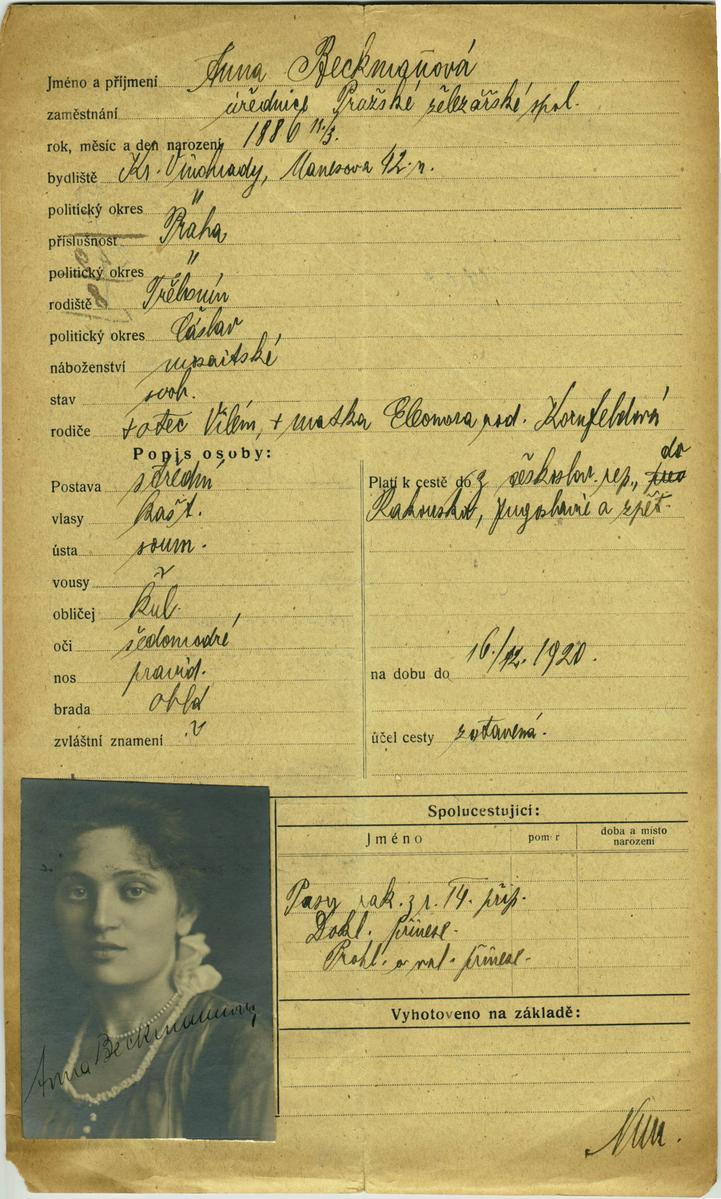 Jméno a příjmení Anna Beckmaňová
zaměstnání úřednice Pražské železářské spol.
rok, měsíc a den narození 1886 11/3.
bydliště Kr. Vinohrady, Manesova 42. n.
politický okres "
příslušnost Praha
politický okres "
rodiště Třebonín
politický okres Čáslav
náboženství mosaitské
stav svob.
rodiče + otec Vilém, + matka Eleonora rod. Kornfeldová
Popis osoby:
Postava střední
vlasy kašt.
ústa soum.
vousy
obličej kul.
oči šedomodré
nos pravid.
brada oblá
zvláštní znamení
Platí k cestě do z českoslov. rep., do
Rakouska, Jugoslavie a zpět.
na dobu do 16./12. 1920.
účel cesty zotavená.
Spolucestující:
Jméno poměr doba a místo
narození
Pasy rak. z r. 14. přip.
Dokl. přinese.
Prohl. o nal. přinese.
Vyhotoveno na základě:
Anna Beckmannová